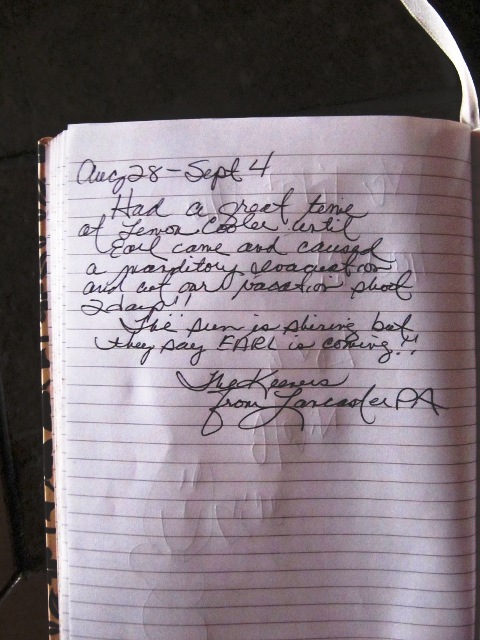 Aug 28 - Sept 4
Had a great time
at Lemon Cooler until
Earl came and caused
a manditory evacuation
and cut our vacation short
2 days!!
The sun is shining but
they say EARL is coming!!
The Keeners
from Lancaster PA